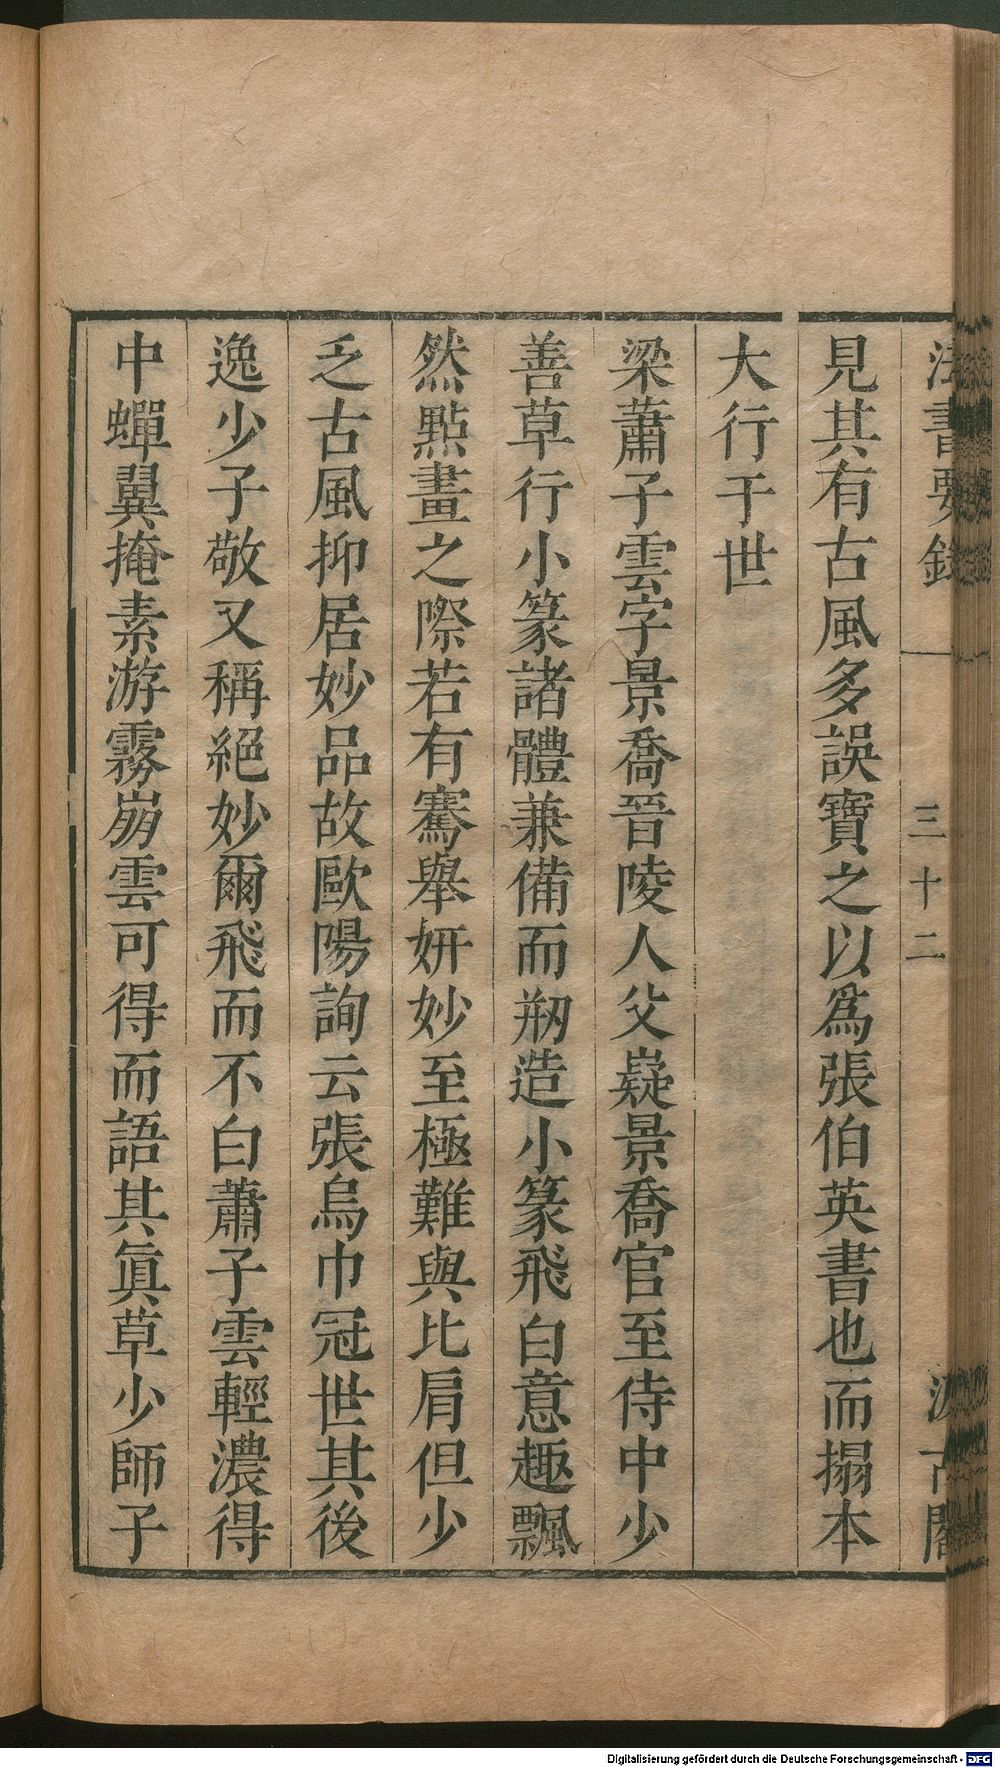 法書要錄 三十二 汲古閣
見其有古風多誤寶之以爲張伯英書也而搨本
大行于世
梁蕭子雲字景喬晉陵人父嶷景喬官至侍中少
善草行小篆諸體兼備而剏造小篆飛白意趣飄
然點畫之際若有騫舉妍妙至極難與比肩但少
乏古風抑居妙品故歐陽詢云張烏巾冠世其後
逸少子敬又稱絕妙爾飛而不白蕭子雲輕濃得
中蟬翼掩素游霧崩雲可得而語其眞草少師子
Digitalisierung gefördert durch die Deutsche Forschungsgemeinschaft - DFG